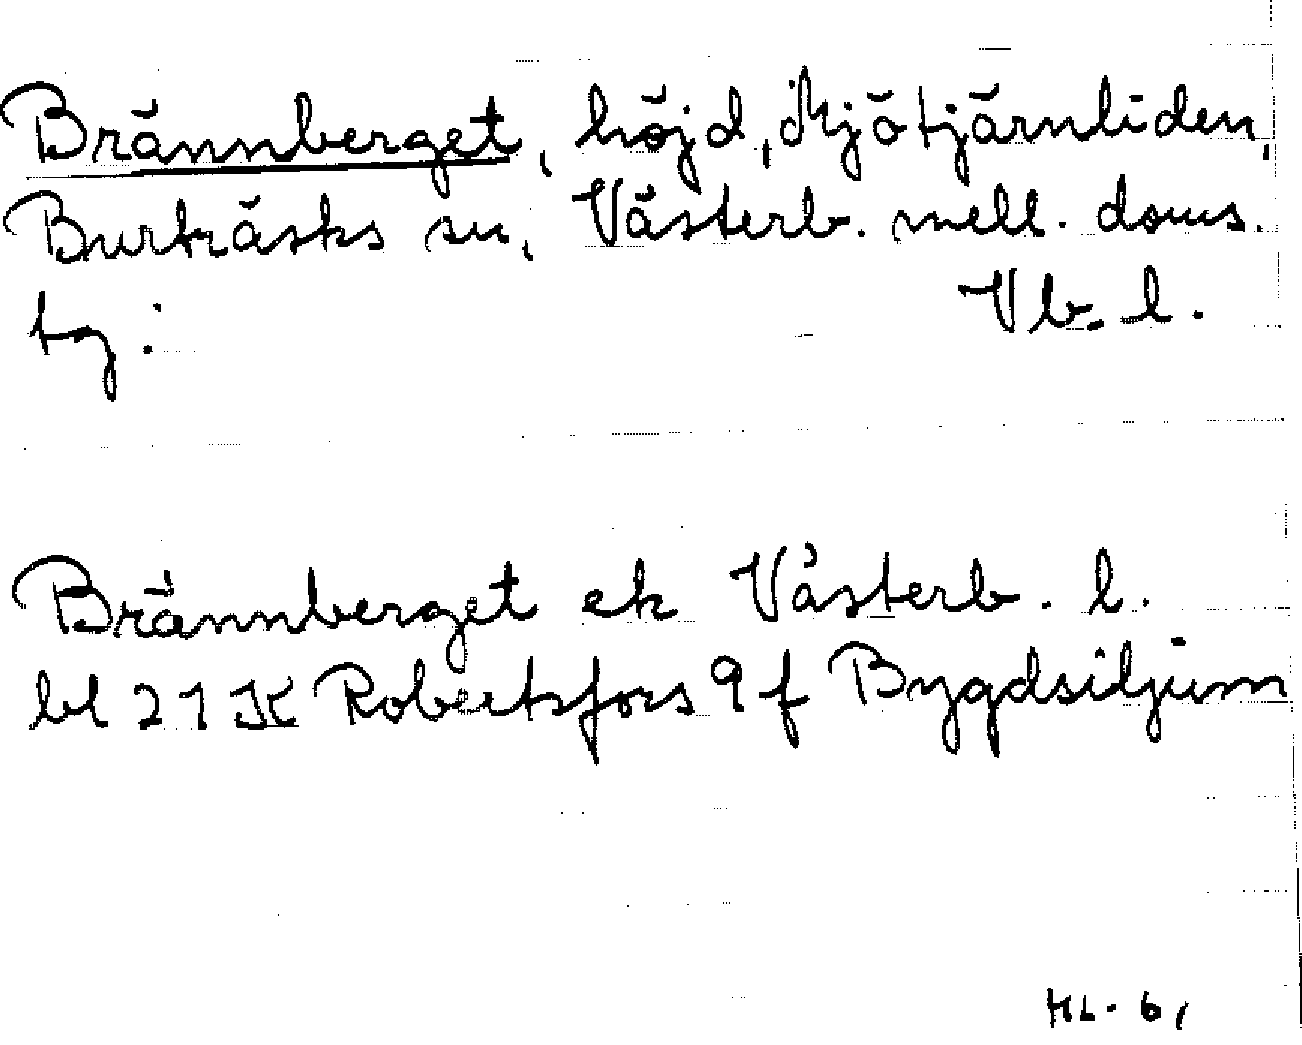 Brännberget, höjd, Mjötjärnliden,
Burträsks sn, Västerb. mell. doms.
tg: Vb. l.
Brännberget ek Västerb. l.
bl 21 K Robertsfors 9 f Bygdsiljum